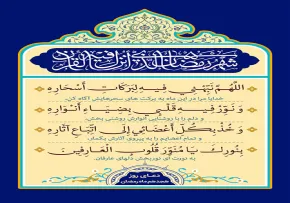 شهر رمضان الذی انزل فیه القرآن
اللهم نبهنی فیه لبرکات أسحاره
خدایا مرا در این ماه به برکت های سحرهایش آگاه کن
ونور فیه قلبی بضیاء أنواره
و دلم را با روشنایی انوارش روشنی بخش،
وخذ بکل أعضائی إلی اتباع آثاره
و تمام اعضایم را به پیروی آثارش بگمار،
بنورک یا منور قلوب العارفین
به نورت ای نوربخش دلهای عارفان.
دعای روز
هجدهم ماه رمضان